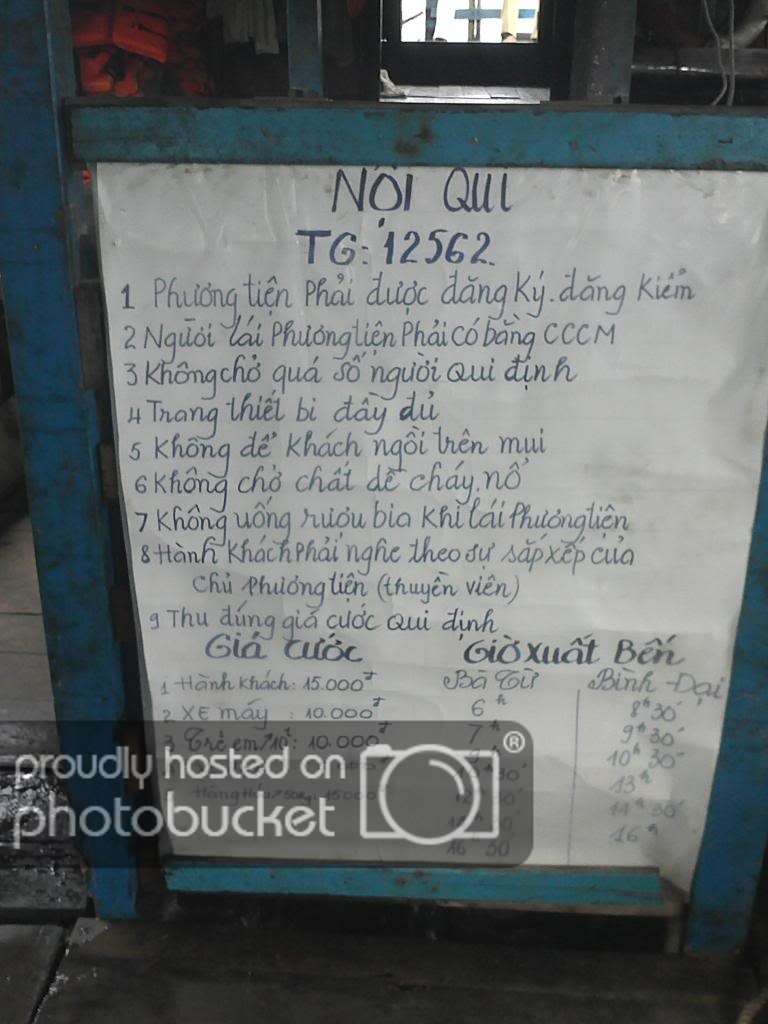 NỘI QUI
TG: 12562.
1 Phương tiện Phải được đăng Ký. đăng Kiểm
2 Người lái Phương tiện Phải có bằng CCCM
3 Không chở quá số người Qui định
4 Trang thiết bi đầy đủ
5 Không để khách ngồi trên mui
6 Không chở chất dể cháy, nổ
7 Không uống rượu bia Khi lái Phương tiện
8 Hành Khách Phải nghe theo sự sắp xếp của
Chủ Phương tiện (thuyền viên)
9 Thu đúng giá cước Qui định
Giá cước Giờ xuất Bến
1 Hành khách: 15.000đ Bà Từ Bình - Đại
2 XE máy : 10.000đ 6h 8h30'
3 Trẻ em 10t: 10.000đ 7h 9h30'
10h30'
Hàng Hóa 50kg: 15000đ 13h
14h30'
16h30 16h
proudly hosted on
photobucket ®